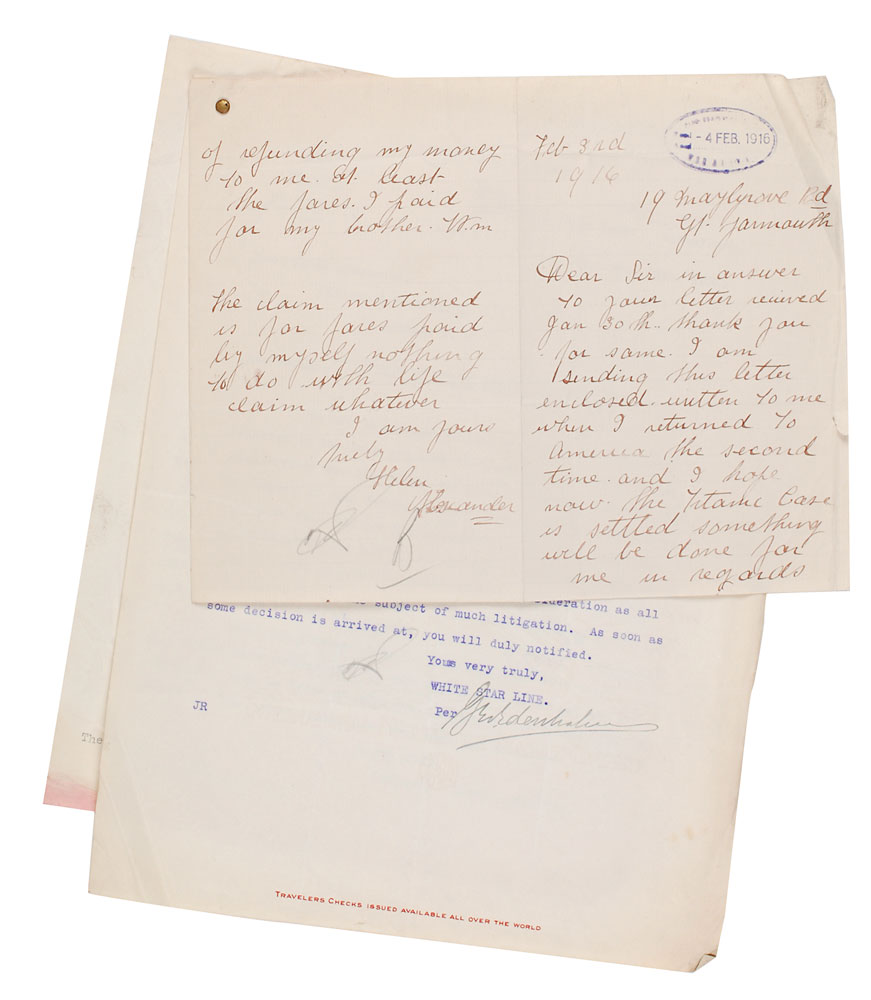 Feb 3rd
1916
- 4 FEB. 1916
19 Maygrove Rd
Gt. Yarmouth
Dear Sir in answer
to your letter recieved
Jan 30th. thank you
for same. I am
sending this letter
enclosed. written to me
when I returned to
America the second
time. and I hope
now. the Titanic Case
is settled something
will be done for
me in regards
of refunding my money
to me. at least
the fares. I paid
for my brother. Wm
the claim mentioned
is for fares paid
by myself nothing
to do with life
claim whatever
I am yours
truly
Helen
Alexander
subject of much litigation. As soon as
some decision is arrived at, you will duly notified.
Yours very truly,
WHITE STAR LINE.
Per
JR
The
TRAVELERS CHECKS ISSUED AVAILABLE ALL OVER THE WORLD